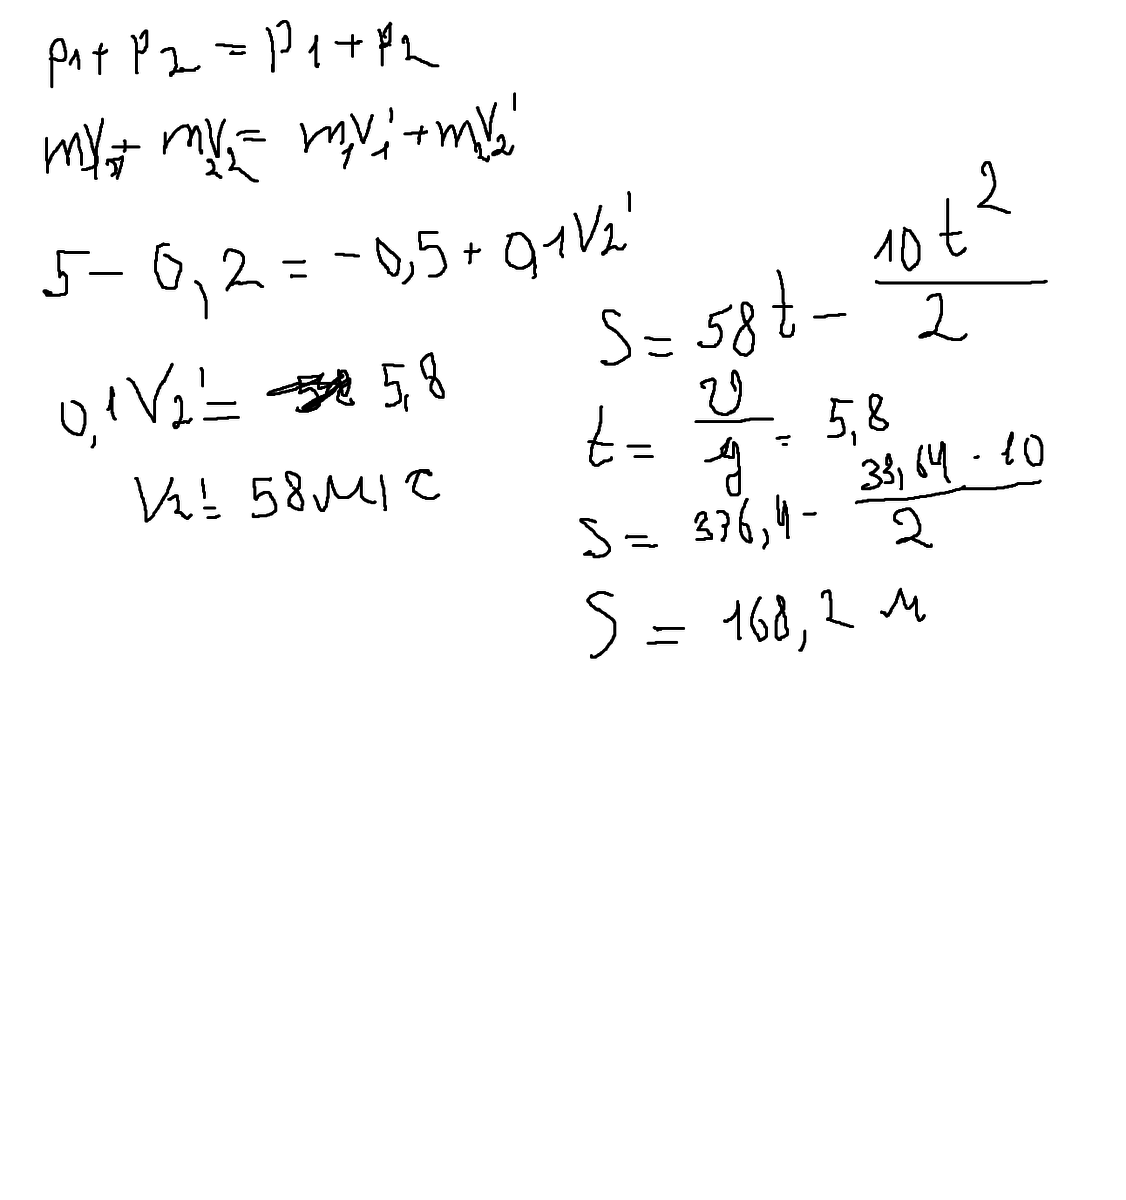 p1 + p2 = p1 + p2
m1V1 + m2V2 = m1V1' + m2V2'
5 - 0,2 = -0,5 + 0,1V2'
0,1V2' = 5,8
V2' = 58м/с
S = 58t - 10t²/2
t = v/g = 5,8
S = 336,4 - 33,64 · 10/2
S = 168,2 м